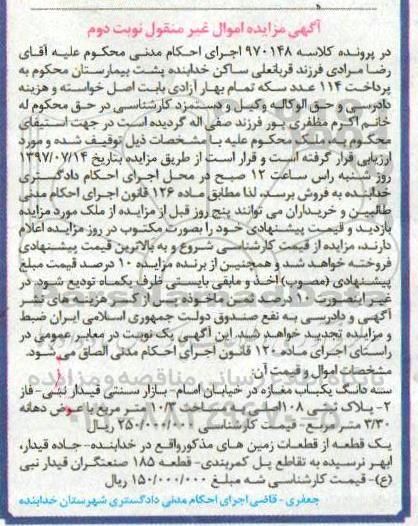 آگهی مزایده اموال غیر منقول نوبت دوم
در پرونده کلاسه ۹۷۰۱۴۸ اجرای احکام مدنی محکوم علیه آقای
رضا مرادی فرزند قربانعلی ساکن خدابنده پشت بیمارستان محکوم به
پرداخت ۱۱۴ عدد سکه تمام بهار آزادی بابت اصل خواسته و هزینه
دادرسی و حق الوکاله وکیل و دستمزد کارشناسی در حق محکوم له
خانم اکرم مظفری پور فرزند صفی اله گردیده است در جهت استیفای
محکوم به ملک محکوم علیه با مشخصات ذیل توقیف شده و مورد
ارزیابی قرار گرفته است و قرار است از طریق مزایده بتاریخ ۱۳۹۷/۰۷/۱۴
روز شنبه راس ساعت ۱۲ صبح در محل اجرای احکام دادگستری
خدابنده به فروش برسد، لذا مطابق ماده ۱۲۶ قانون اجرای احکام مدنی
طالبین و خریداران می توانند پنج روز قبل از مزایده از ملک مورد مزایده
بازدید و قیمت پیشنهادی خود را بصورت مکتوب در روز مزایده اعلام
دارند، مزایده از قیمت کارشناسی شروع و به بالاترین قیمت پیشنهادی
فروخته خواهد شد و همچنین از برنده مزایده ۱۰ درصد قیمت مبلغ
پیشنهادی (مصوب) اخذ و مابقی بایستی ظرف یکماه تودیع شود. در
غیر اینصورت ۱۰ درصد ثمن ماخوذه پس از کسر هزینه های نشر
آگهی و دادرسی به نفع صندوق دولت جمهوری اسلامی ایران ضبط
و مزایده تجدید خواهد شد. این آگهی یک نوبت در معابر عمومی در
راستای اجرای ماده ۱۲۰ قانون اجرای احکام مدنی الصاق می شود.
مشخصات اموال و قیمت آن:
سه دانگ یکباب مغازه در خیابان امام- بازار سنتی قیدار نبی- فاز
۲- پلاک ثبتی ۱۰۸ اصلی به مساحت ۱۰/۳ متر مربع با عرض دهانه
۳/۳۰ متر مربع- قیمت کارشناسی ۲۵۰/۰۰۰/۰۰۰ ریال
یک قطعه از قطعات زمین های مذکور واقع در خدابنده- جاده قیدار،
ابهر نرسیده به تقاطع پل کمربندی- قطعه ۱۸۵ صنعتگران قیدار نبی
(ع)- قیمت کارشناسی شه مبلغ ۱۵۰/۰۰۰/۰۰۰ ریال
جعفری- قاضی اجرای احکام مدنی دادگستری شهرستان خدابنده